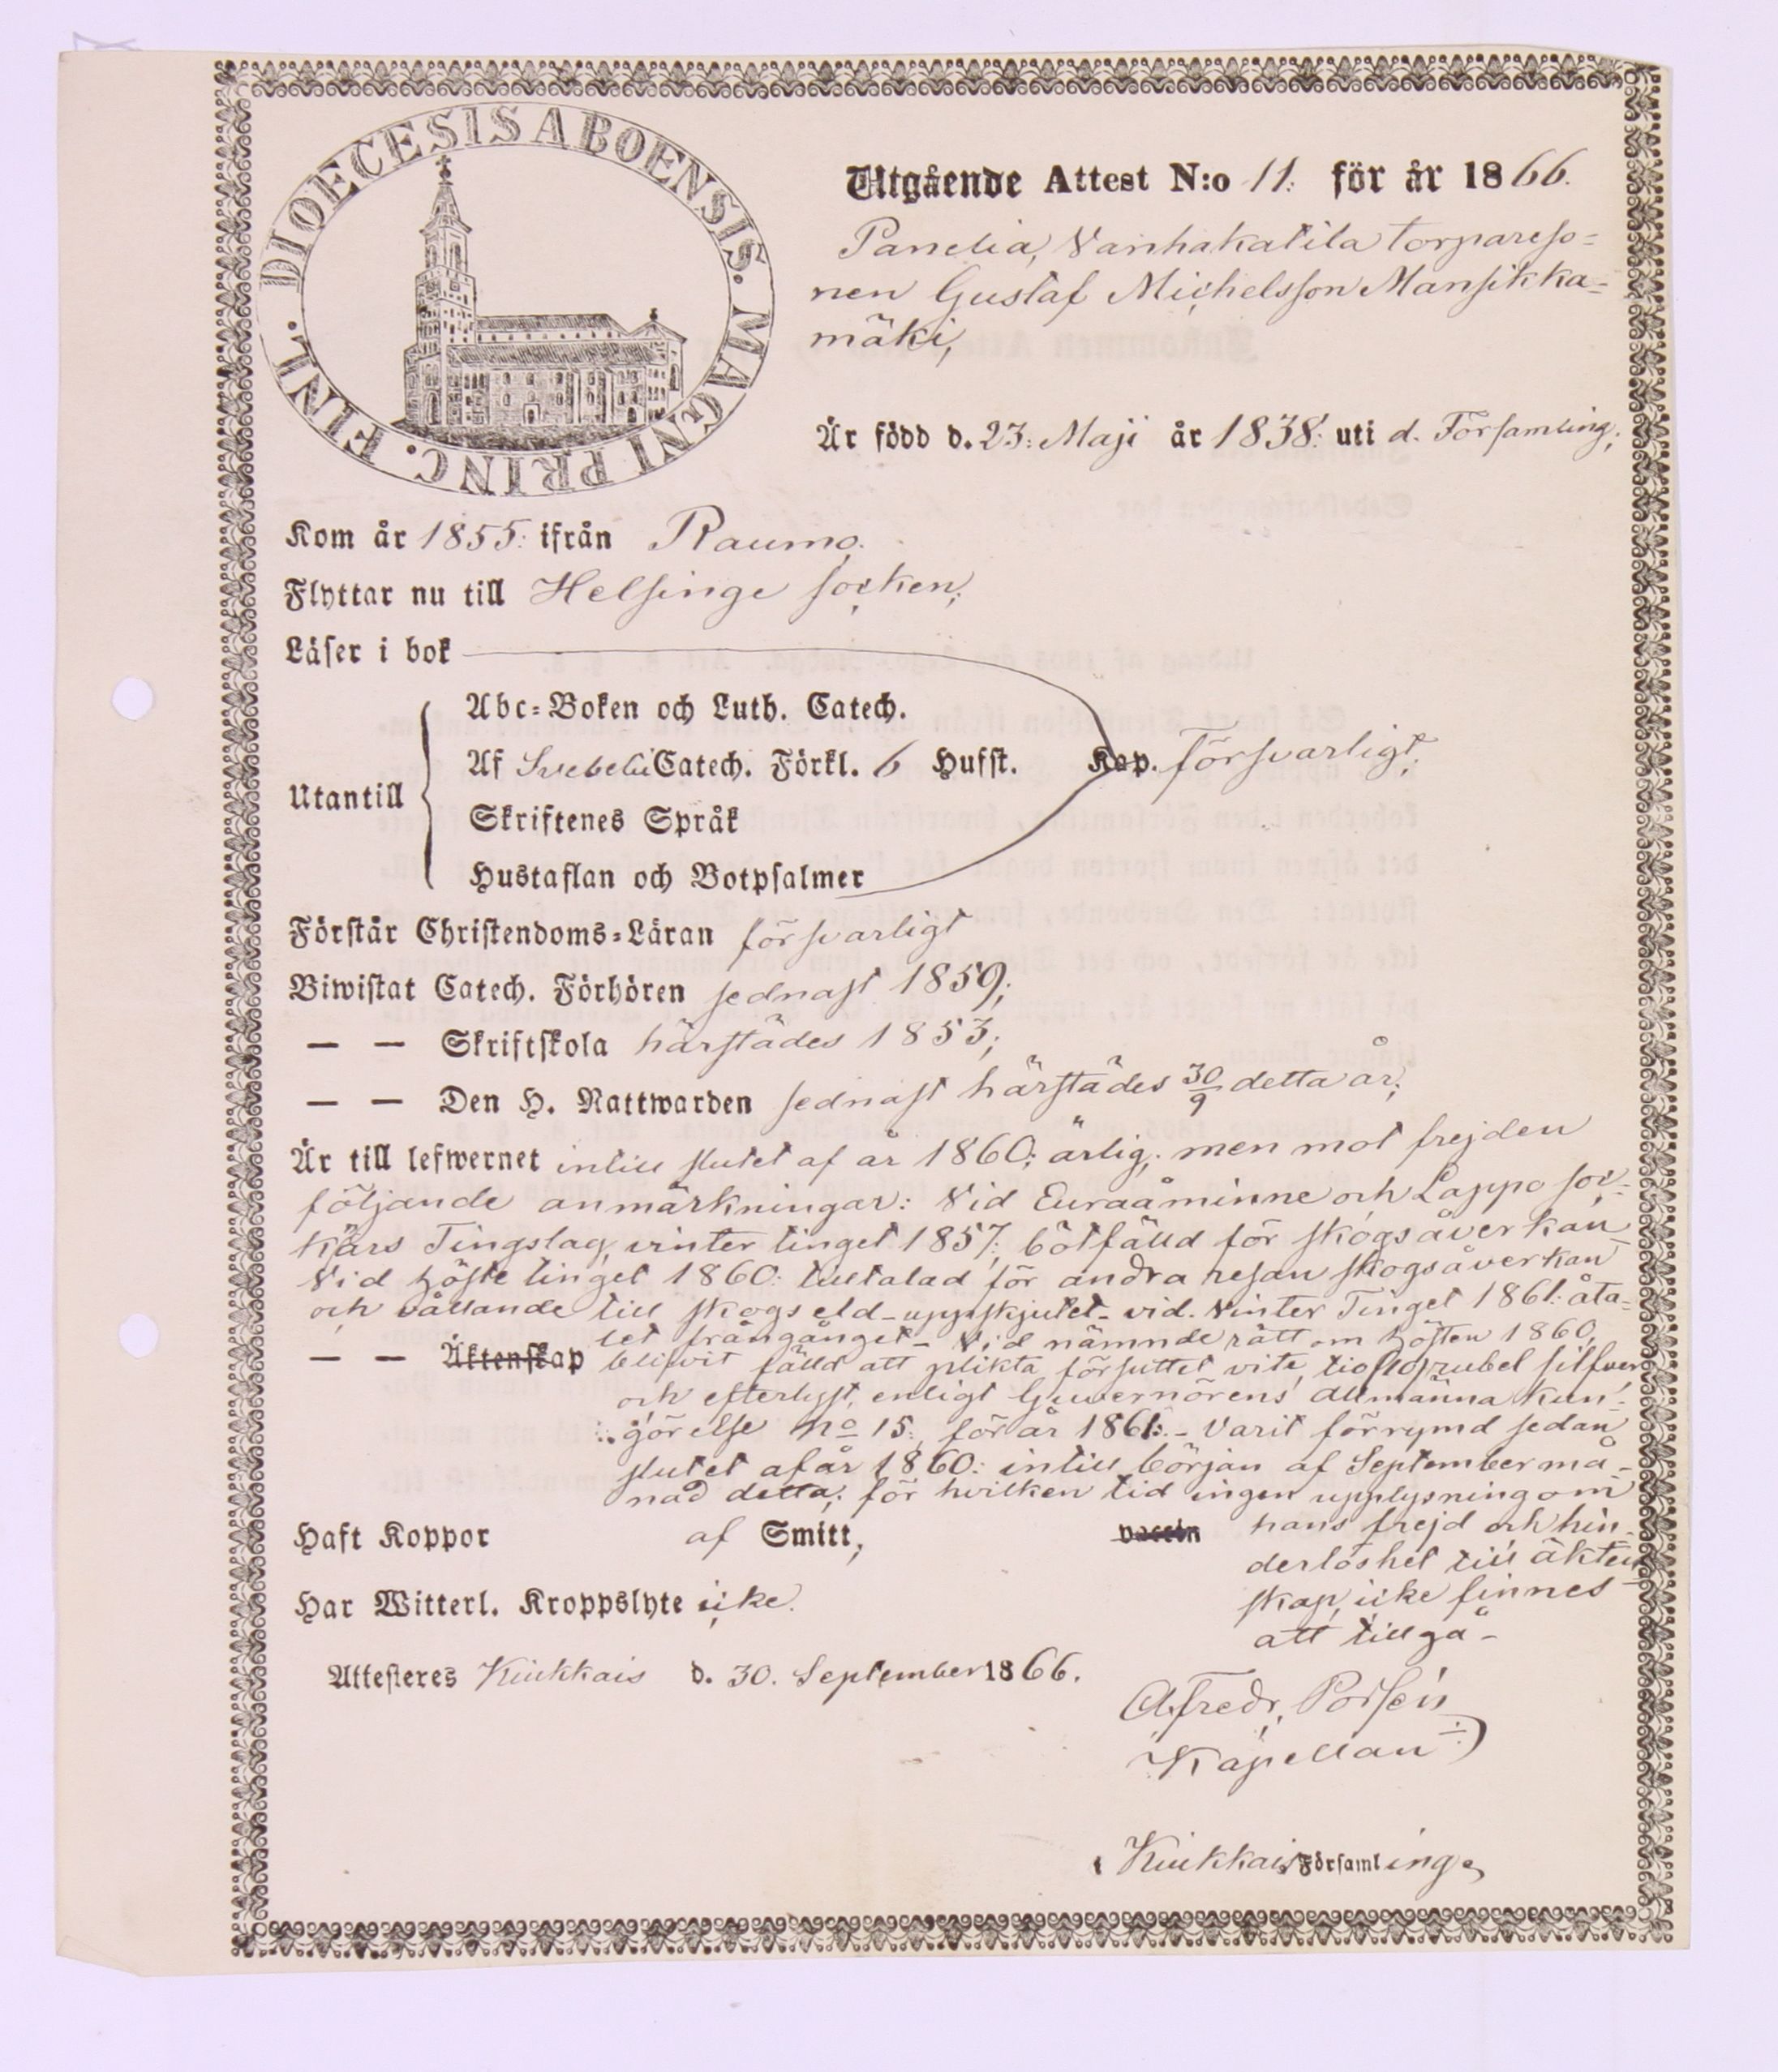 DIOECESIS ABOENSIS. MAGNI PRINC. FINL.
Utgående Attest N:o 11: för år 1866.
Panelia, Vanhakatila torpareso=
nen Gustaf Michelsson Mansikka=
mäki,
Är född d. 23: Maji år 1838: uti d. Församling;
Kom år 1855: ifrån Raumo.
Flyttar nu till Helsinge socken;
Läser i bok
Abc=Boken och Luth. Catech.
Utantill
Af Svebelii Catech. Förkl. 6 Hufst. Kap. försvarligt;
Skriftenes Språk
Hustaflan och Botpsalmer
Förstår Christendoms=Läran försvarligt
Biwistat Catech. Förhören sednast 1859;
— — Skriftskola härstädes 1853;
— — Den H. Nattwarden sednast härstädes 30/9 detta år;
Är till lefwernet intill slutet af år 1860: ärlig; men mot frejden
följande anmärkningar: Vid Euraåminne och Lappo soc=
kärs Tingslag, vinter tinget 1857; bötfälld för skogsåverkan
Vid höste tinget 1860: tilltalad för andra resan skogsåverkan
och vållande till skogs eld - uppskjutet - vid Vinter Tinget 1861: åta=
let frångånget - Vid nämnde rätt om hösten 1860,
— — Äktenskap blifvit fälld att plikta försuttet vite, tio (10) rubel silfver
och efterlyst, enligt Guvernörens allmänna kun=
görelse No 15: för år 1861: - Varit förrymd sedan
slutet af år 1860: intill början af September må=
nad detta; för hvilken tid ingen upplysning om
Haft Koppor af Smitt, vaccin hans frejd och hin=
derlöshet till äkten=
Har Witterl. Kroppslyte icke. skap, icke finnes
att tillgå -
Attesteres Kiukkais d. 30. September 1866.
Alfredr. Porsén
Kapellan
Kiukkais Församling